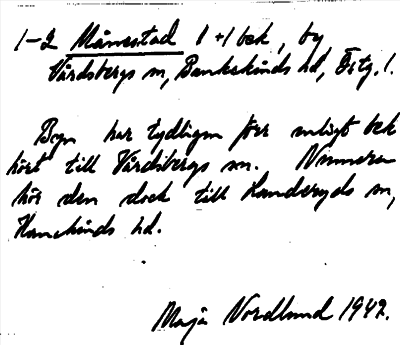 1-2 Månestad 1 +1 bek, by
Vårdsbergs sn, Bankekinds hd, Östg. l.
Byn har tydligen förr enligt bek
hört till Vårdsbergs sn. Numera
hör den dock till Landeryds sn,
Hanekinds hd.
Maja Nordlund 1942.